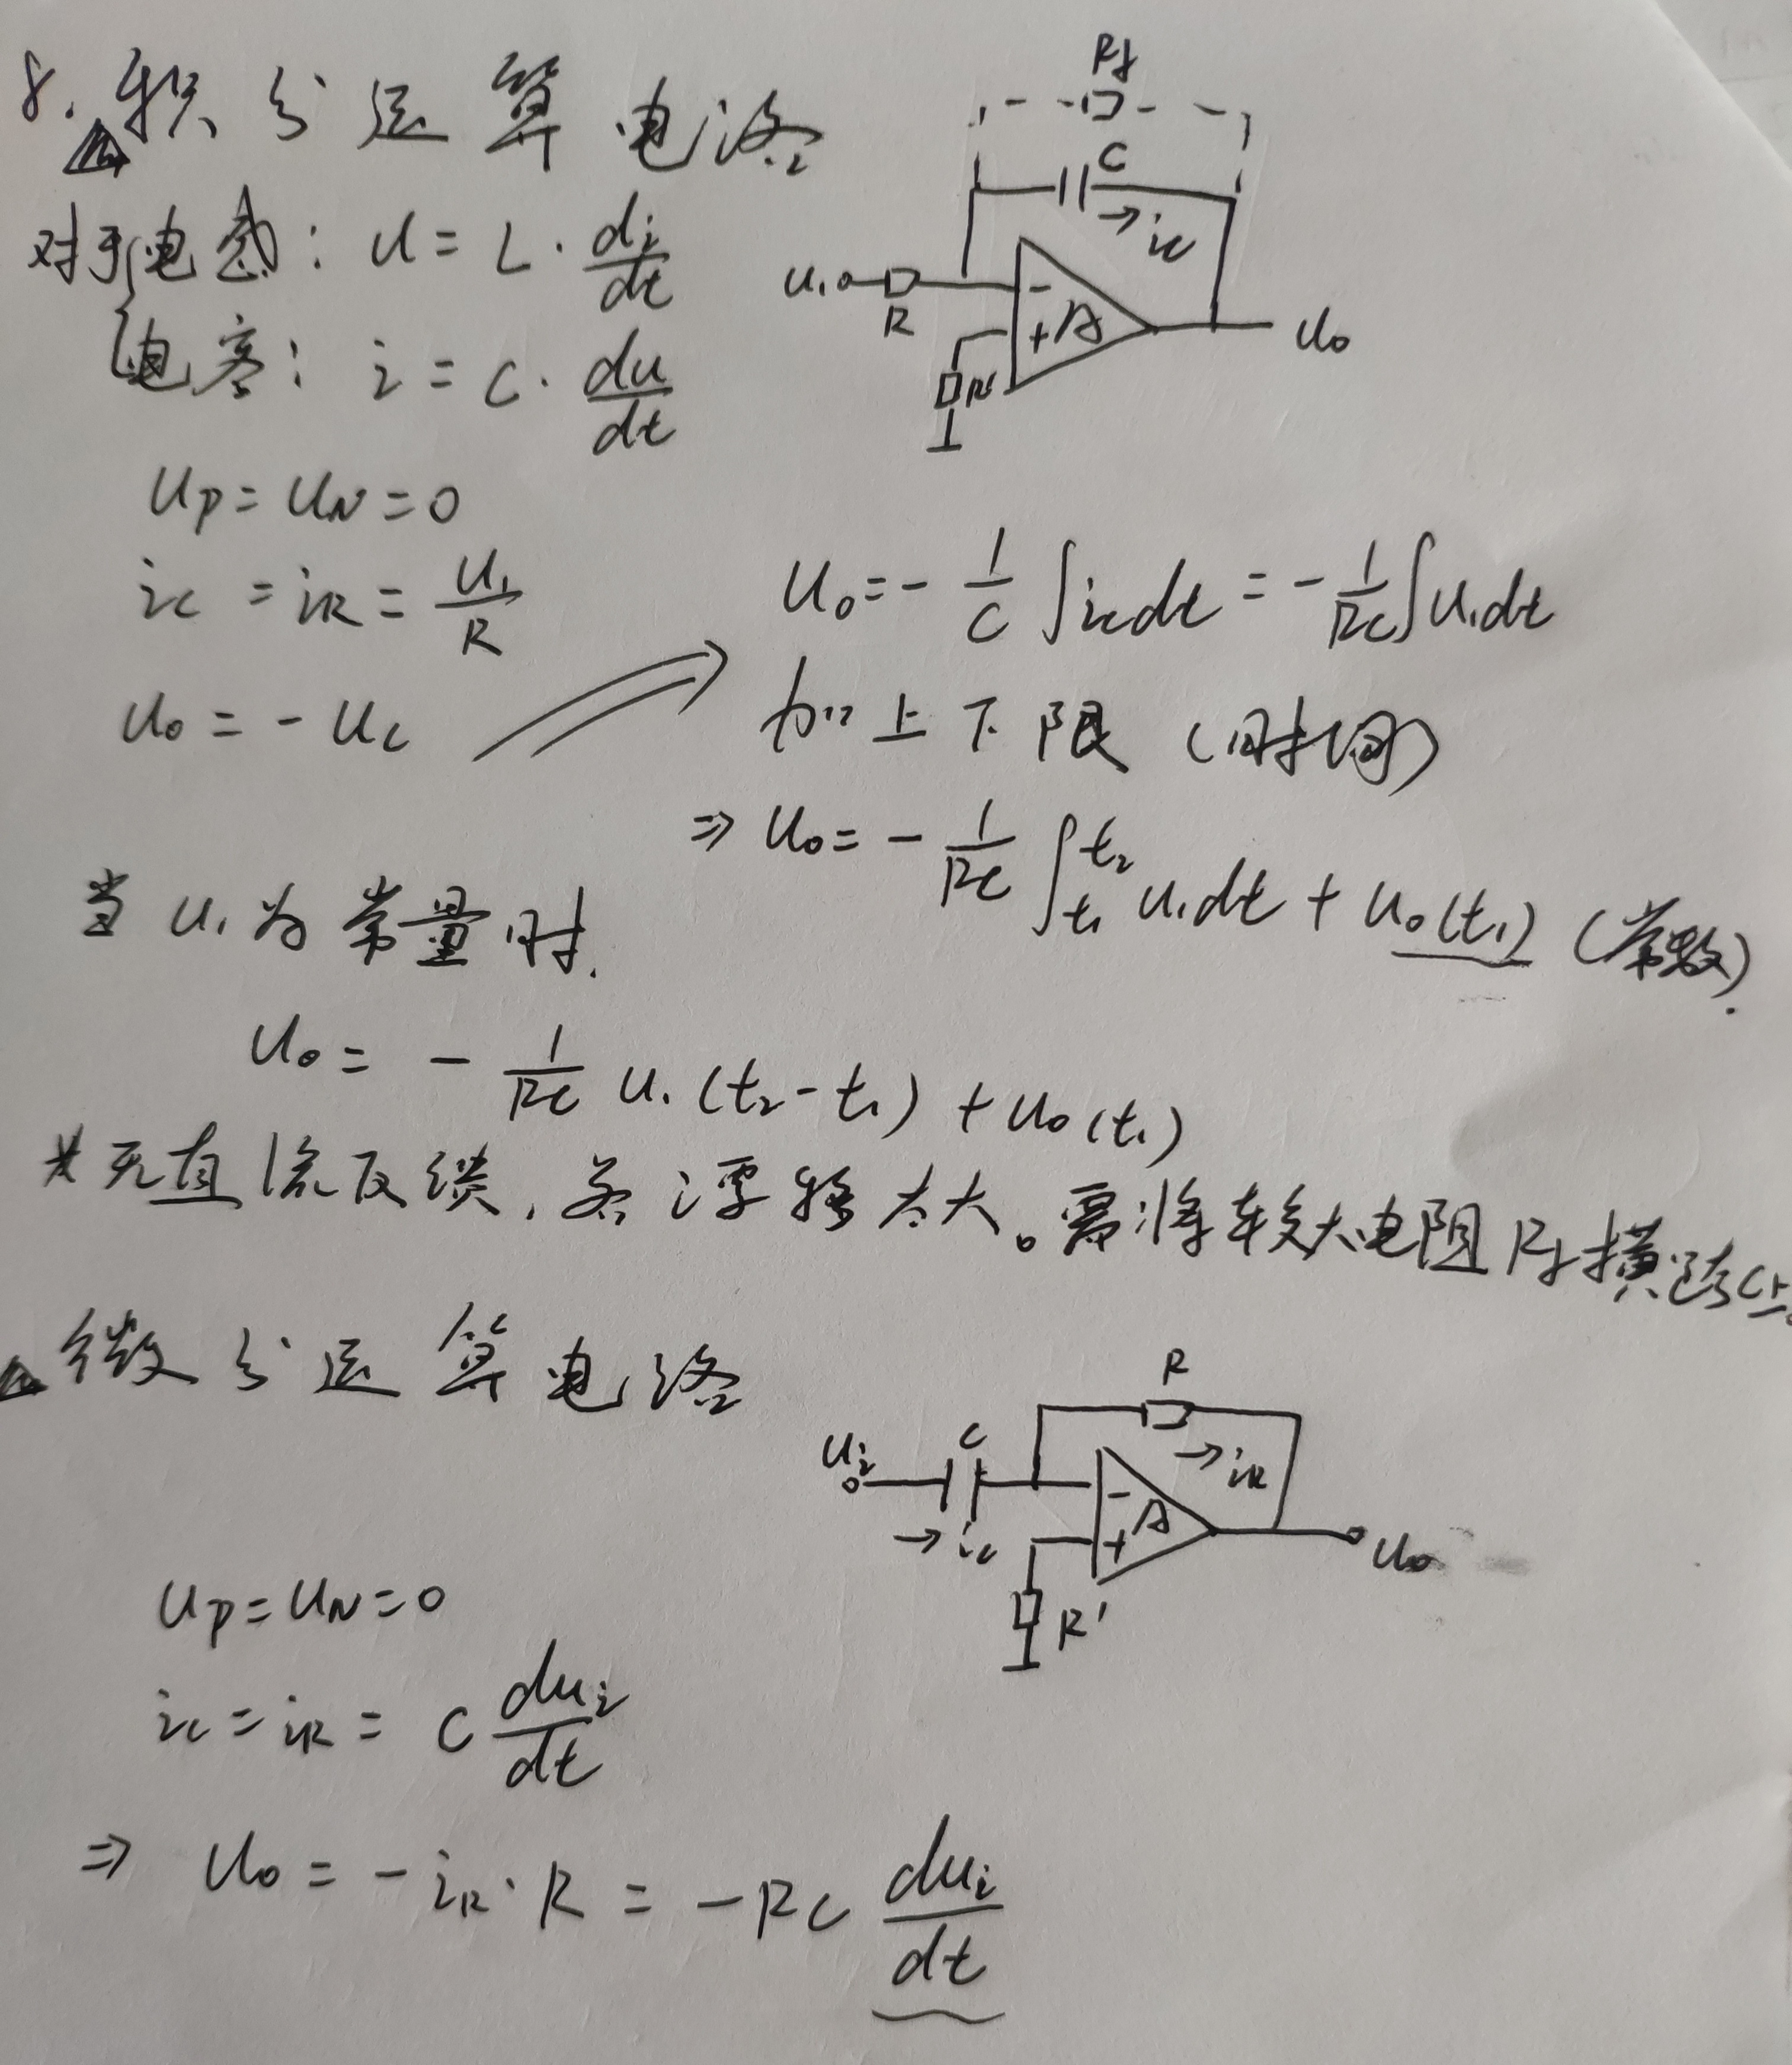 8. 积分运算电路
Rf
C
→ic
u₁
R
-
+
A
R'
u₀
对于电感: u = L · di/dt
电容: i = C · du/dt
uP = uN = 0
ic = iR = u₁/R
u₀ = - uc
u₀ = - 1/C ∫ic dt = - 1/RC ∫u₁dt
加上下限 (时间)
⇒ u₀ = - 1/RC ∫t₁t₂ u₁dt + u₀(t₁) (常数).
当 u₁ 为常量时.
u₀ = - 1/RC u₁ (t₂ - t₁) + u₀(t₁)
*无直流反馈, 零漂移太大。需将较大电阻Rf横跨C上。
微分运算电路
R
→iR
ui
C
→ic
-
+
A
R'
u₀
uP = uN = 0
ic = iR = C dui/dt
⇒ u₀ = - iR · R = - RC dui/dt